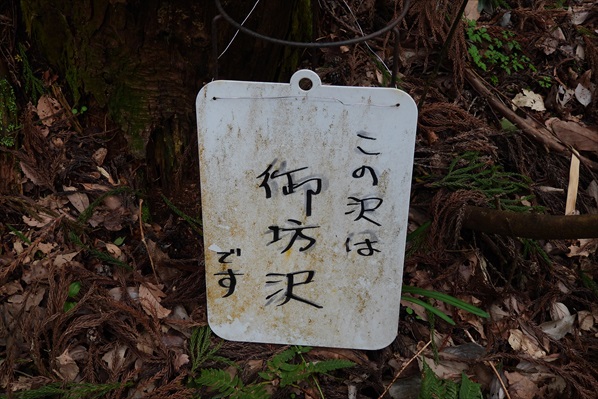 この沢は
御坊沢
です